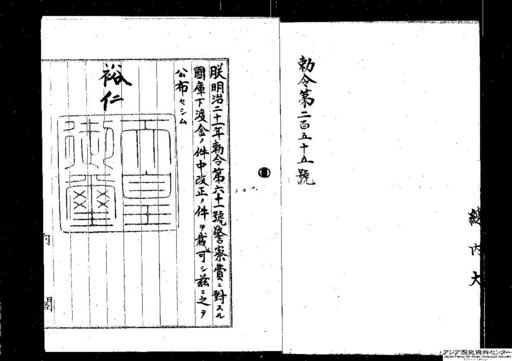 勅令第二百五十五號
朕明治二十一年勅令第六十一號警察費ニ對スル
國庫下渡金ノ件中改正ノ件ヲ裁可シ茲ニ之ヲ
公布セシム
裕仁
天皇
御璽
内閣
總
内
大
アジア歴史資料センター